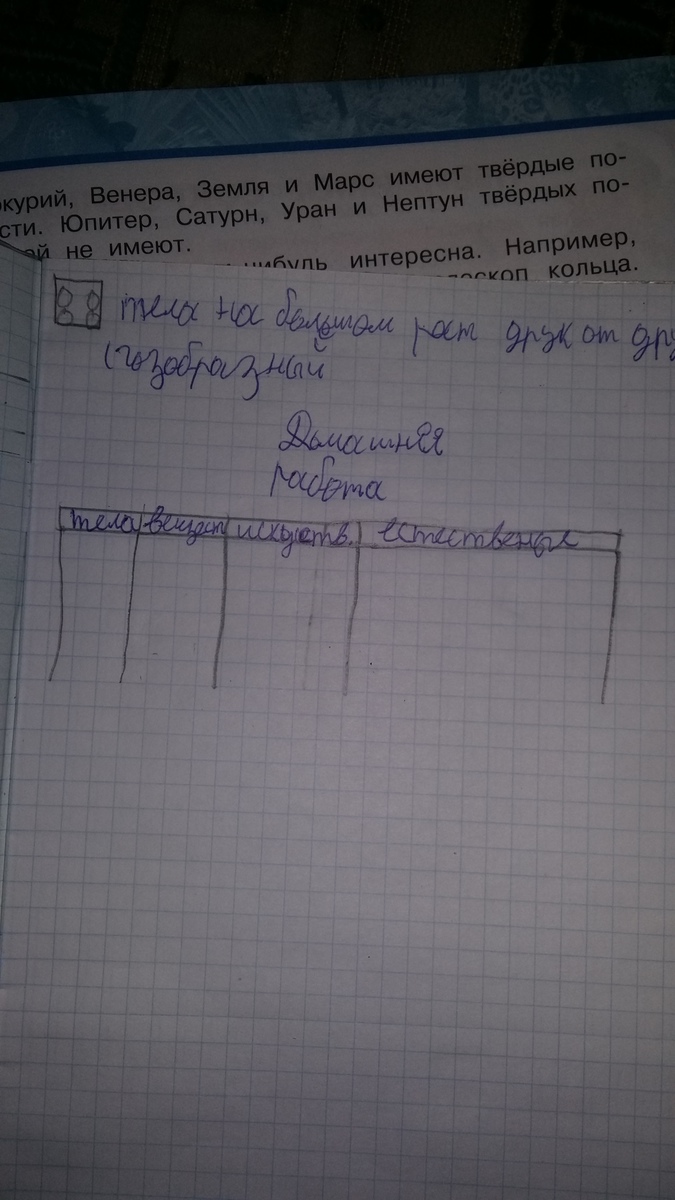 окурий, Венера, Земля и Марс имеют твёрдые по-
сти. Юпитер, Сатурн, Уран и Нептун твёрдых по-
ей не имеют.
нибудь интересна. Например,
лескоп кольца.
тела на большом рост друк от дру
(газобразный
Домашняя
работа
тела вещест искуств. естественые